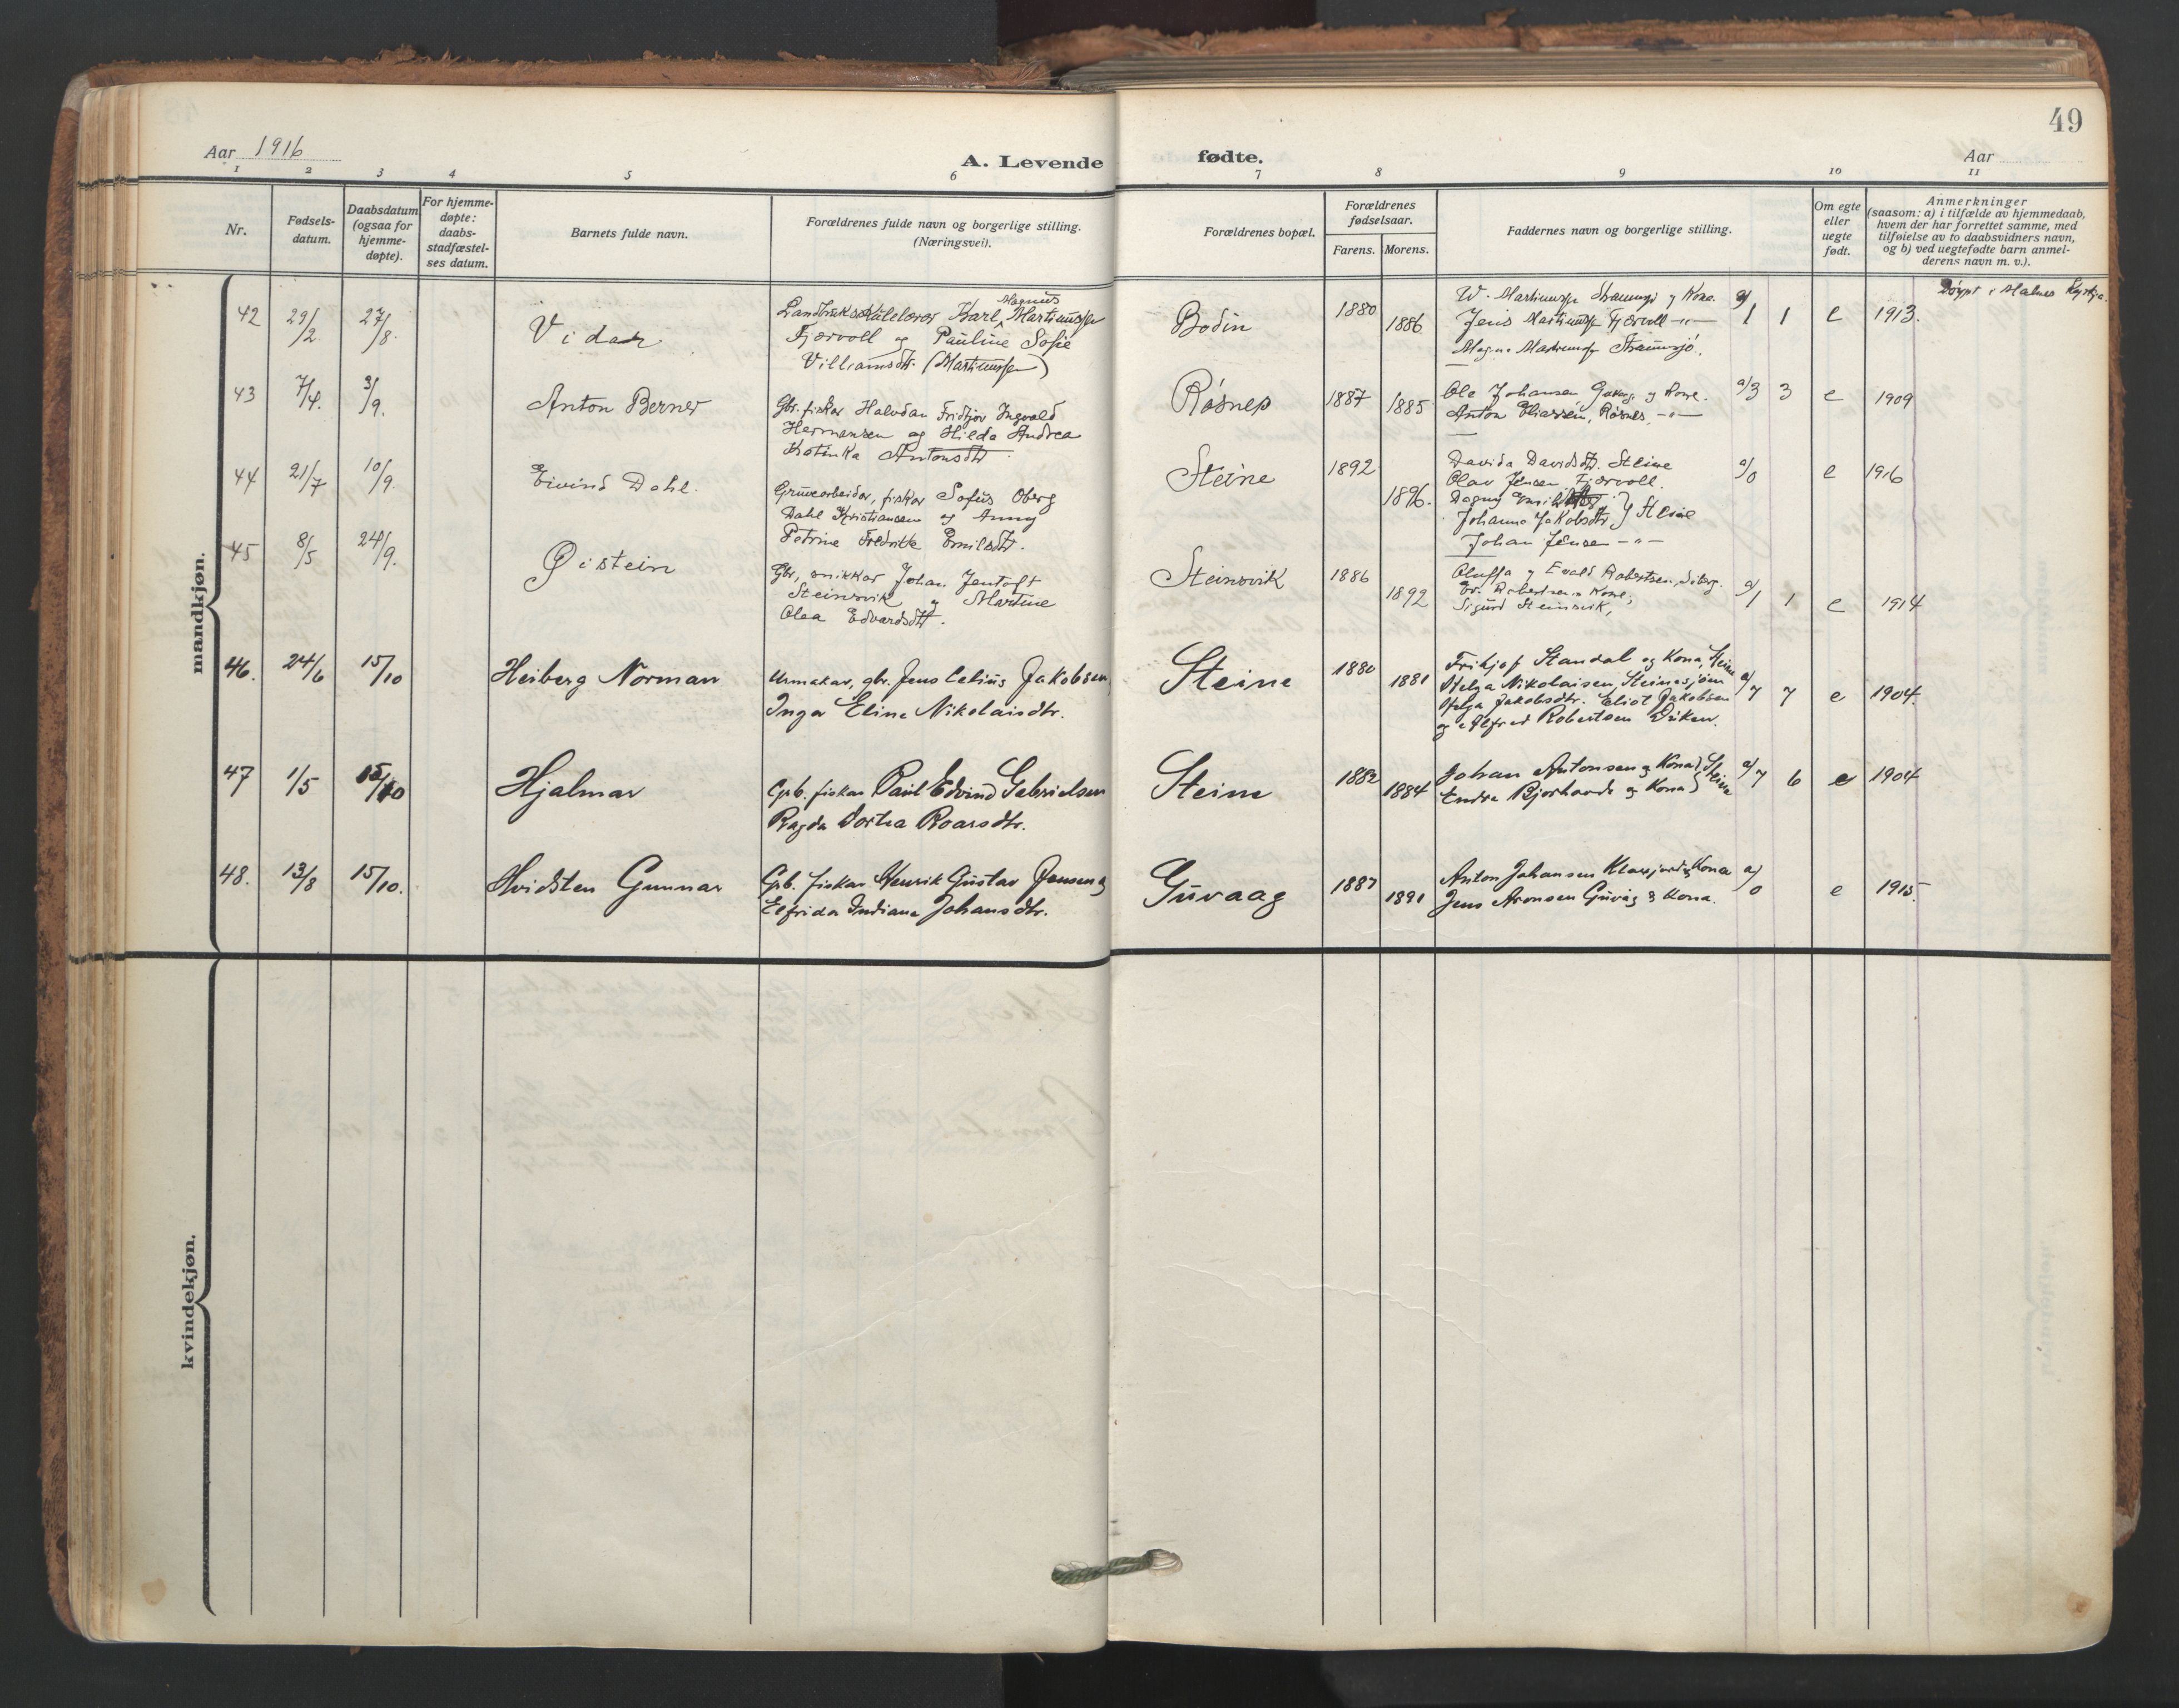 49
Aar 1916
A. Levende fødte.
Aar
1 2 3 4 5 6 7 8 9 10 11
Nr.
Fødsels-
datum.
Daabsdatum
(ogsaa for
hjemme-
døpte).
For hjemme-
døpte:
daabs-
stadfæstel-
ses datum.
Barnets fulde navn.
Forældrenes fulde navn og borgerlige stilling.
(Næringsvei).
Forældrenes bopæl.
Forældrenes
fødselsaar.
Farens. Morens.
Faddernes navn og borgerlige stilling.
Om egte
eller
uegte
født.
Anmerkninger
(saasom: a) i tilfælde av hjemmedaab,
hvem der har forrettet samme, med
tilføielse av to daabsvidners navn,
og b) ved uegtefødte barn anmel-
derens navn m. v.).
mandkjøn.
42 29/2 27/8 Vidar
Landbruksskulelærar Karl Magnus Martinussen
Fjærvoll og Pauline Sofie
Villiamsdtr. (Martinussen)
Bodin 1880 1886
W. Martinussen Straumsjø og Kona.
Jens Martinussen Fjærvoll -"-
Magne Martinussen Straumsjø.
a/1 1 e 1913.
Døypt i Malnes Kyrkja.
43 7/4. 3/9. Anton Berner
Gbr. fiskar Halvdan Fridtjov Ingvald
Hermansen og Hilda Andrea
Katinka Antonsdtr.
Røsnes 1887 1885
Ole Johansen og Kone.
Anton Eliassen, Røsnes, -"-
a/3 3 e 1909
44 21/7 10/9. Eivind Dahl.
Gruvearbeidar, fiskar Sofus Oberg
Dahl Kristiansen og Anny
Petrine Fredrikke Emilsdtr.
Steine 1892 1896.
Davida Davidsdtr. Steine
Olav Jensen, Fjærvoll.
Dagny Emilsdtr.
Johanna Jakobsdtr. } Steine
Johan Jensen -"-
a/0 e 1916
45 8/5 24/9. Øistein
Gbr, snikkar Johan Jentoft
Steinsvik og Martine
Olea Edvardsdtr.
Steinsvik 1886 1892
Oluffa og Evald Robertsen,
Ev. Robertsens Kone,
Sigurd Steinsvik,
a/1 1 e 1914
46. 24/6 15/10 Heiberg Norman
Urmakar, gbr. Jens Celius Jakobsen
Inga Eline Nikolaisdtr.
Steine 1880 1881
Frithjof Standal og Kona, Steine
Helga Nikolaisen, Steinesjøen
Helga Jakobsdtr. Eliot Jakobsen
og Alfred Robertsen
a/7 7 e 1904.
47 1/5 15/10 Hjalmar
Grb. fiskar Paul Edvind Gabrielsen
Ragda Dortea Roarsdtr.
Steine 1882 1884
Johan Antonsen og Kona } Steine
Endre Bjørhovde og Kona }
a/7 6 e 1904
48. 13/8 15/10. Hvidsten Gunnar
Grb. fiskar Henrik Gustav Jensen og
Elfrida Indiana Johansdtr.
Guvaag 1887 1891
Anton Johansen og Kona
Jens Aronsen Guvåg & Kona.
a/0 e 1915.
kvindekjøn.